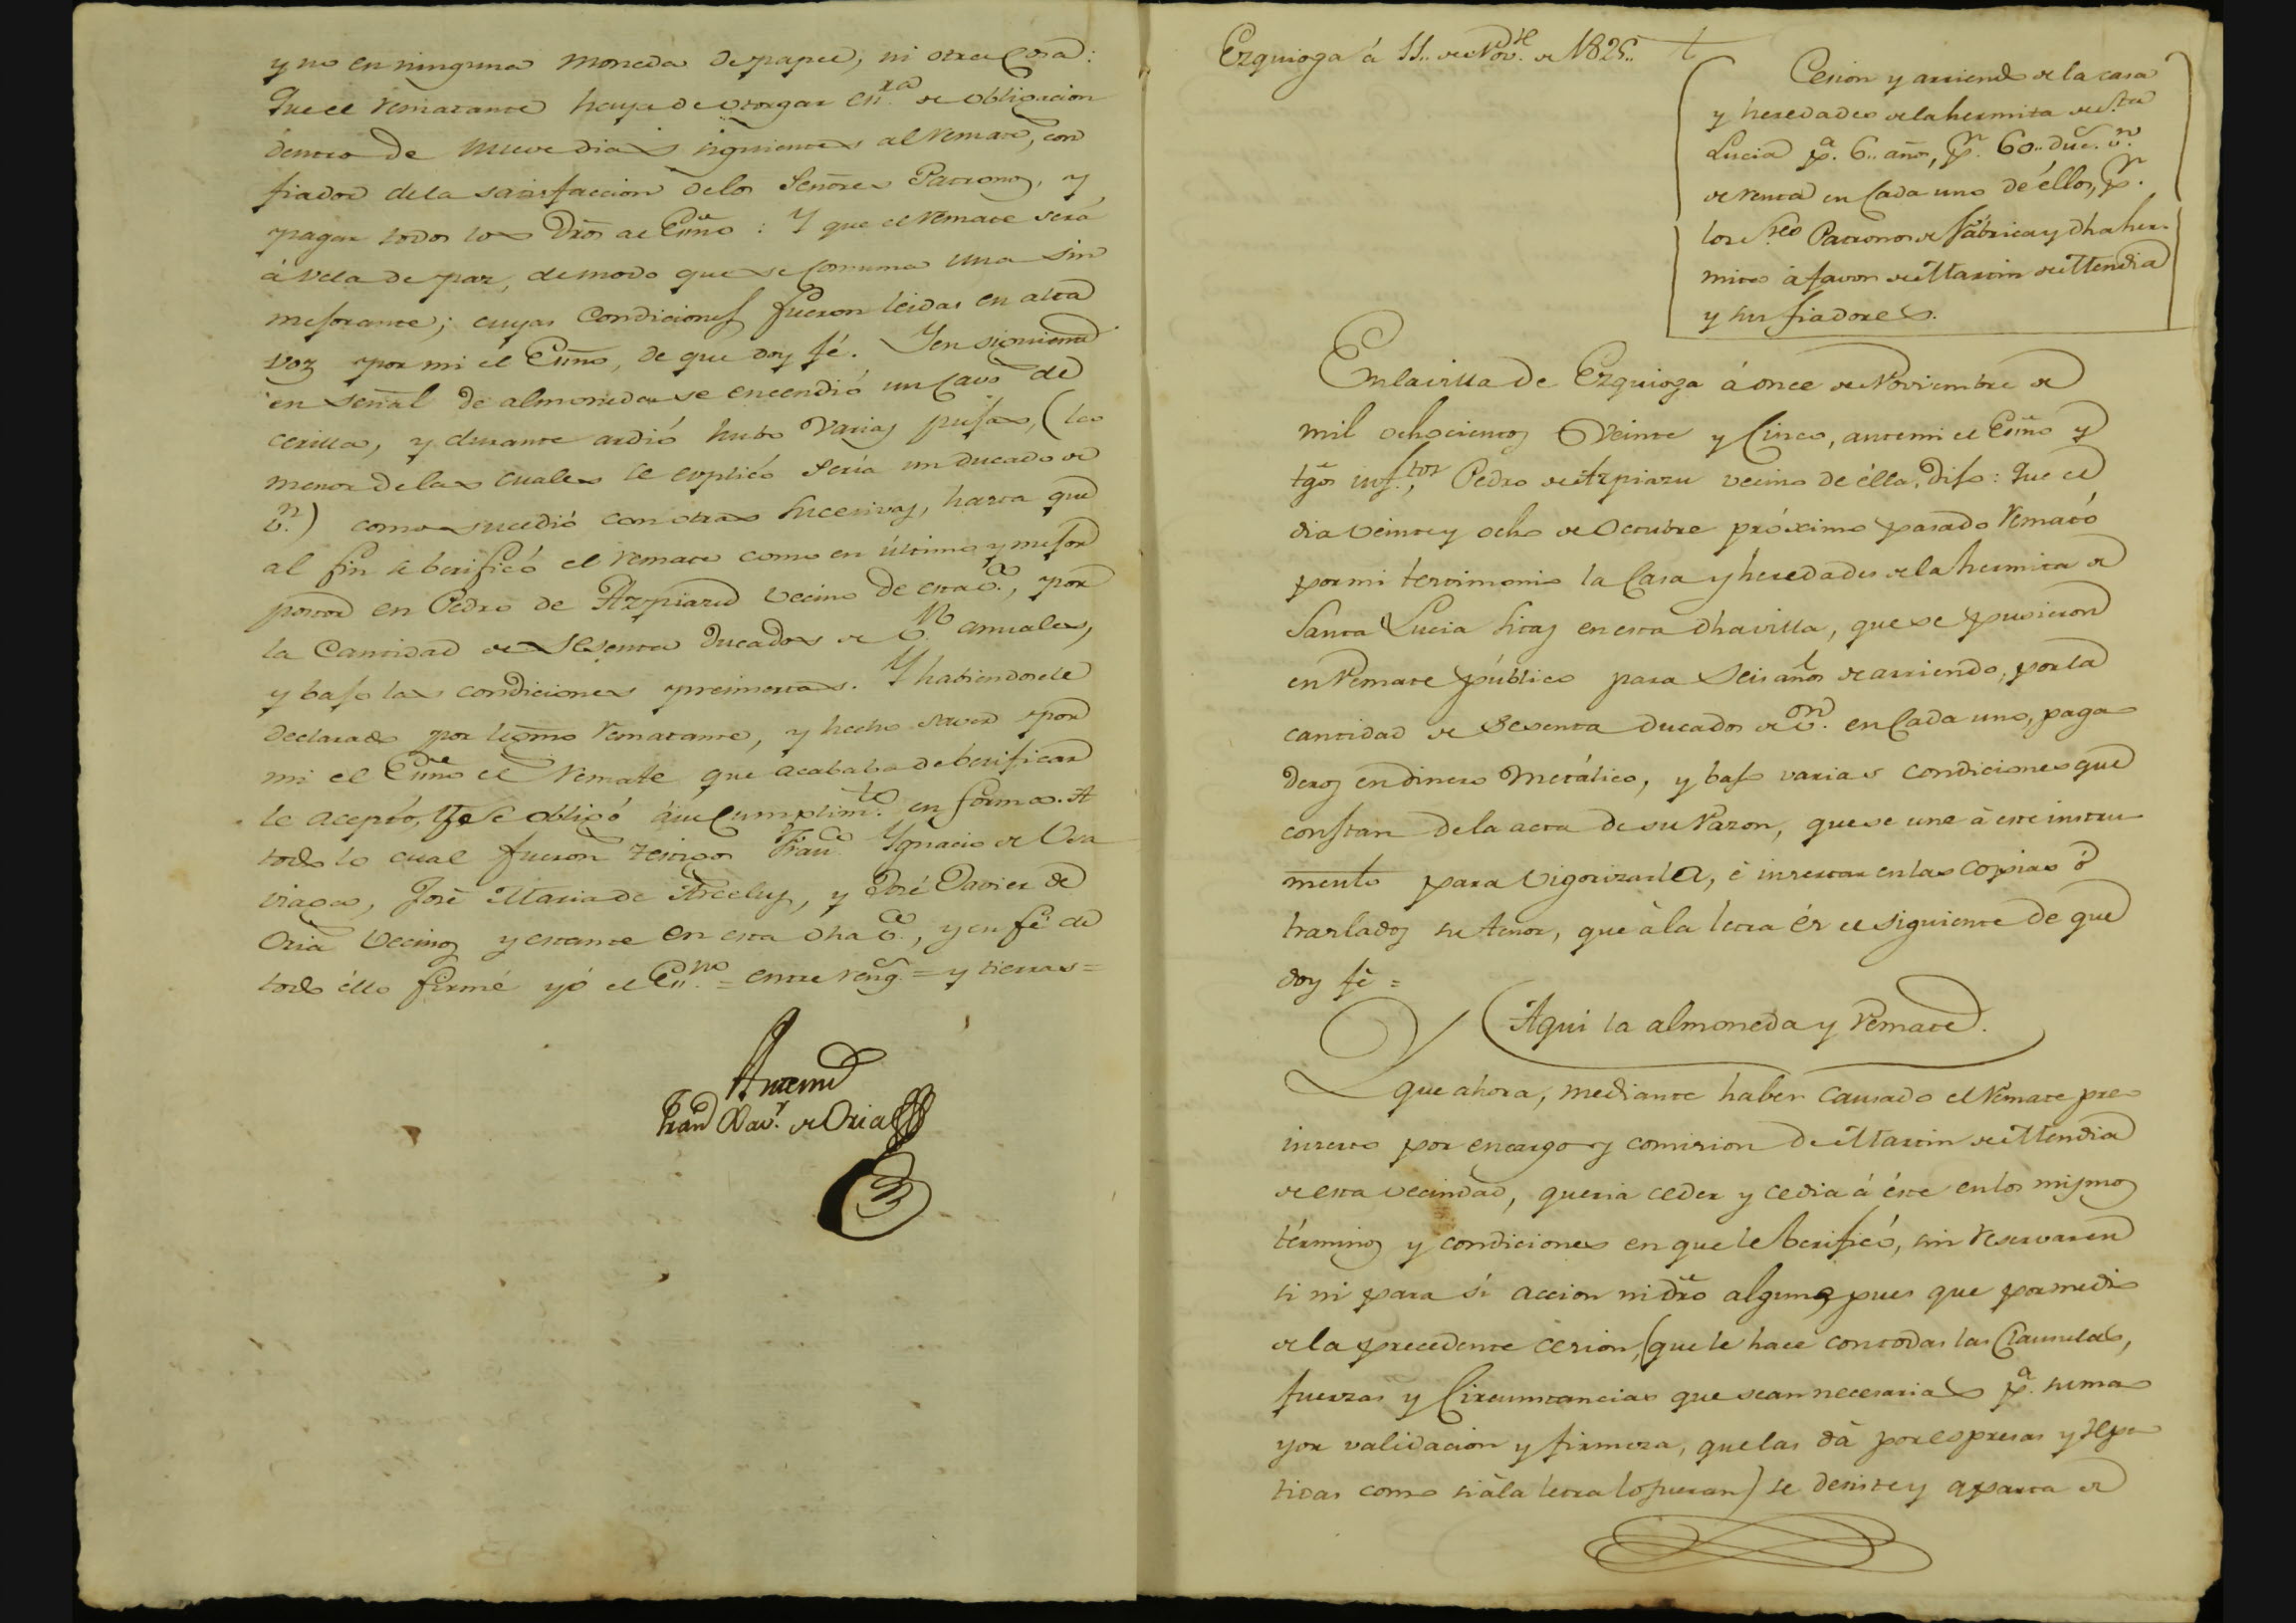 y no en ninguna moneda de papel, ni otra Cosa:
Que el rematante haya de otorgar Es.ra de obligacion
dentro de nueve dias siguientes al remate, con
fiador de la satisfaccion delos Señores Patronos, y
pagar todos los Dros al Esno: Y que el remate será
á vela de par, de modo que se Consuma una sin
mejorante; cuyas Condiciones fueron leidas en alta
voz por mi el Esno, de que doy fé. Y en siguiente
en señal de almoneda se encendió un Cavo de
cerilla, y durante ardió hubo varias pujas, (la
menor delas cuales se esplicó sería un ducado de
v.n) como sucedió con otras sucesivas, hasta que
al fin se berificó el remate como en último y mejor
postor en Pedro de Azpiazu vecino de esta v.a, por
la Cantidad de Sesenta Ducados de v.n anuales,
y bajo las condiciones preinsertas. Y habiendosele
declarado por legmo rematante, y hecho saver por
mi el Esno el Remate que acababa de berificar
le aceptó, y se obligó á su Cumplim.to en forma. A
todo lo cual fueron testigos Fran.co Ygnacio de Usa
viaga, José Maria de Arcelus, y José Javier de
Oria vecinos y estante en esta dha v.a, y en fé de
todo éllo firmé yó el Es.no = entre reng.s = y tierras =
Antemi
Fran Xav.r de Oria
Ezquioga á 11.. de Nov.e de 1825..
Cesion y arriendo de la casa
y heredades de la hermita de S.ta
Lucia p.a 6.. años, p.r 60.. duc.s v.n
de renta en Cada uno de éllos, p.r
los S.res Patronos de Fábrica y dha her-
mita á favor de Martin de Mendia
y sus fiadores.
En la villa de Ezquioga á once de Noviembre de
mil ochocientos Veinte y Cinco, antemi el Esno y
tgos inf.tos Pedro de Azpiazu vecino de élla, dijo: Que el
dia veinte y ocho de Octubre próximo pasado remató
por mi testimonio la Casa y heredades de la hermita de
Santa Lucia sitas en esta dha villa, que se pusieron
en Remate público para Seis años de arriendo, por la
cantidad de Sesenta Ducados de v.n en Cada uno, paga
deros en dinero Metálico, y bajo varias condiciones que
constan de la acta de su razon, que se une á este instru
mento para vigorizarla, é insertar en las copias ó
traslados su tenor, que á la letra és el siguiente de que
doy fé =
Aqui la almoneda y remate.
Y que ahora, mediante haber causado el remate pre
inserto por encargo y comision de Martin de Mendia
de esta vecindad, queria ceder y cedia á éste en los mismos
términos y condiciones en que le berificó, sin reservar en
si ni para sí accion ni dro alguno, pues que por medio
de la precedente cesion, (que le hace con todas las Clausulas,
fuerzas y Circunstancias que sean necesarias p.a su ma
yor validacion y firmeza, que las dá por espresas y repe
tidas como si á la letra lo fueran) se desiste y aparta de